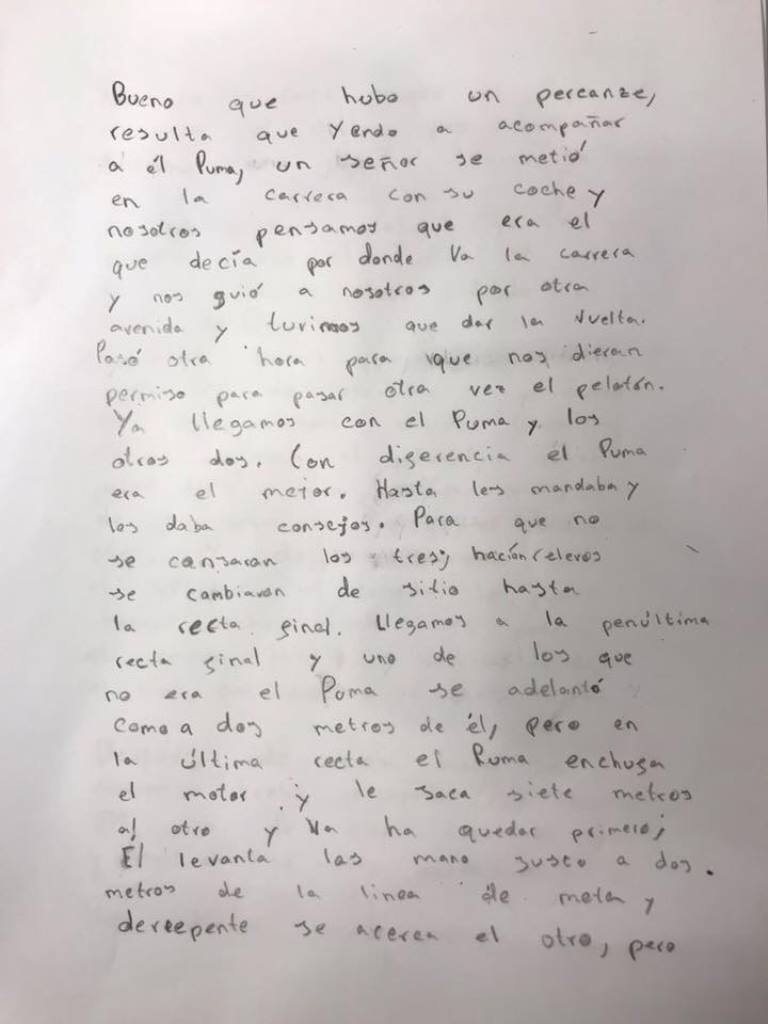 Bueno que hubo un percanze,
resulta que Yendo a acompañar
a él Puma, un señor se metió
en la carrera con su coche y
nosotros pensamos que era el
que decía por donde Va la carrera
y nos guió a nosotros por otra
avenida y tuvimos que dar la Vuelta.
Pasó otra hora para que nos dieran
permiso para pasar otra vez el pelotón.
Ya llegamos con el Puma y los
otros dos. Con diferencia el Puma
era el mejor. Hasta les mandaba y
les daba consejos. Para que no
se cansaran los tres, hacían relevos
se cambiaron de sitio hasta
la recta final. Llegamos a la penúltima
recta final y uno de los que
no era el Puma se adelantó
como a dos metros de él, pero en
la última recta el Puma enchufa
el motor y le saca siete metros
al otro y Va ha quedar primero;
El levanta las mano justo a dos
metros de la linea de meta y
derrepente se acerca el otro, pero